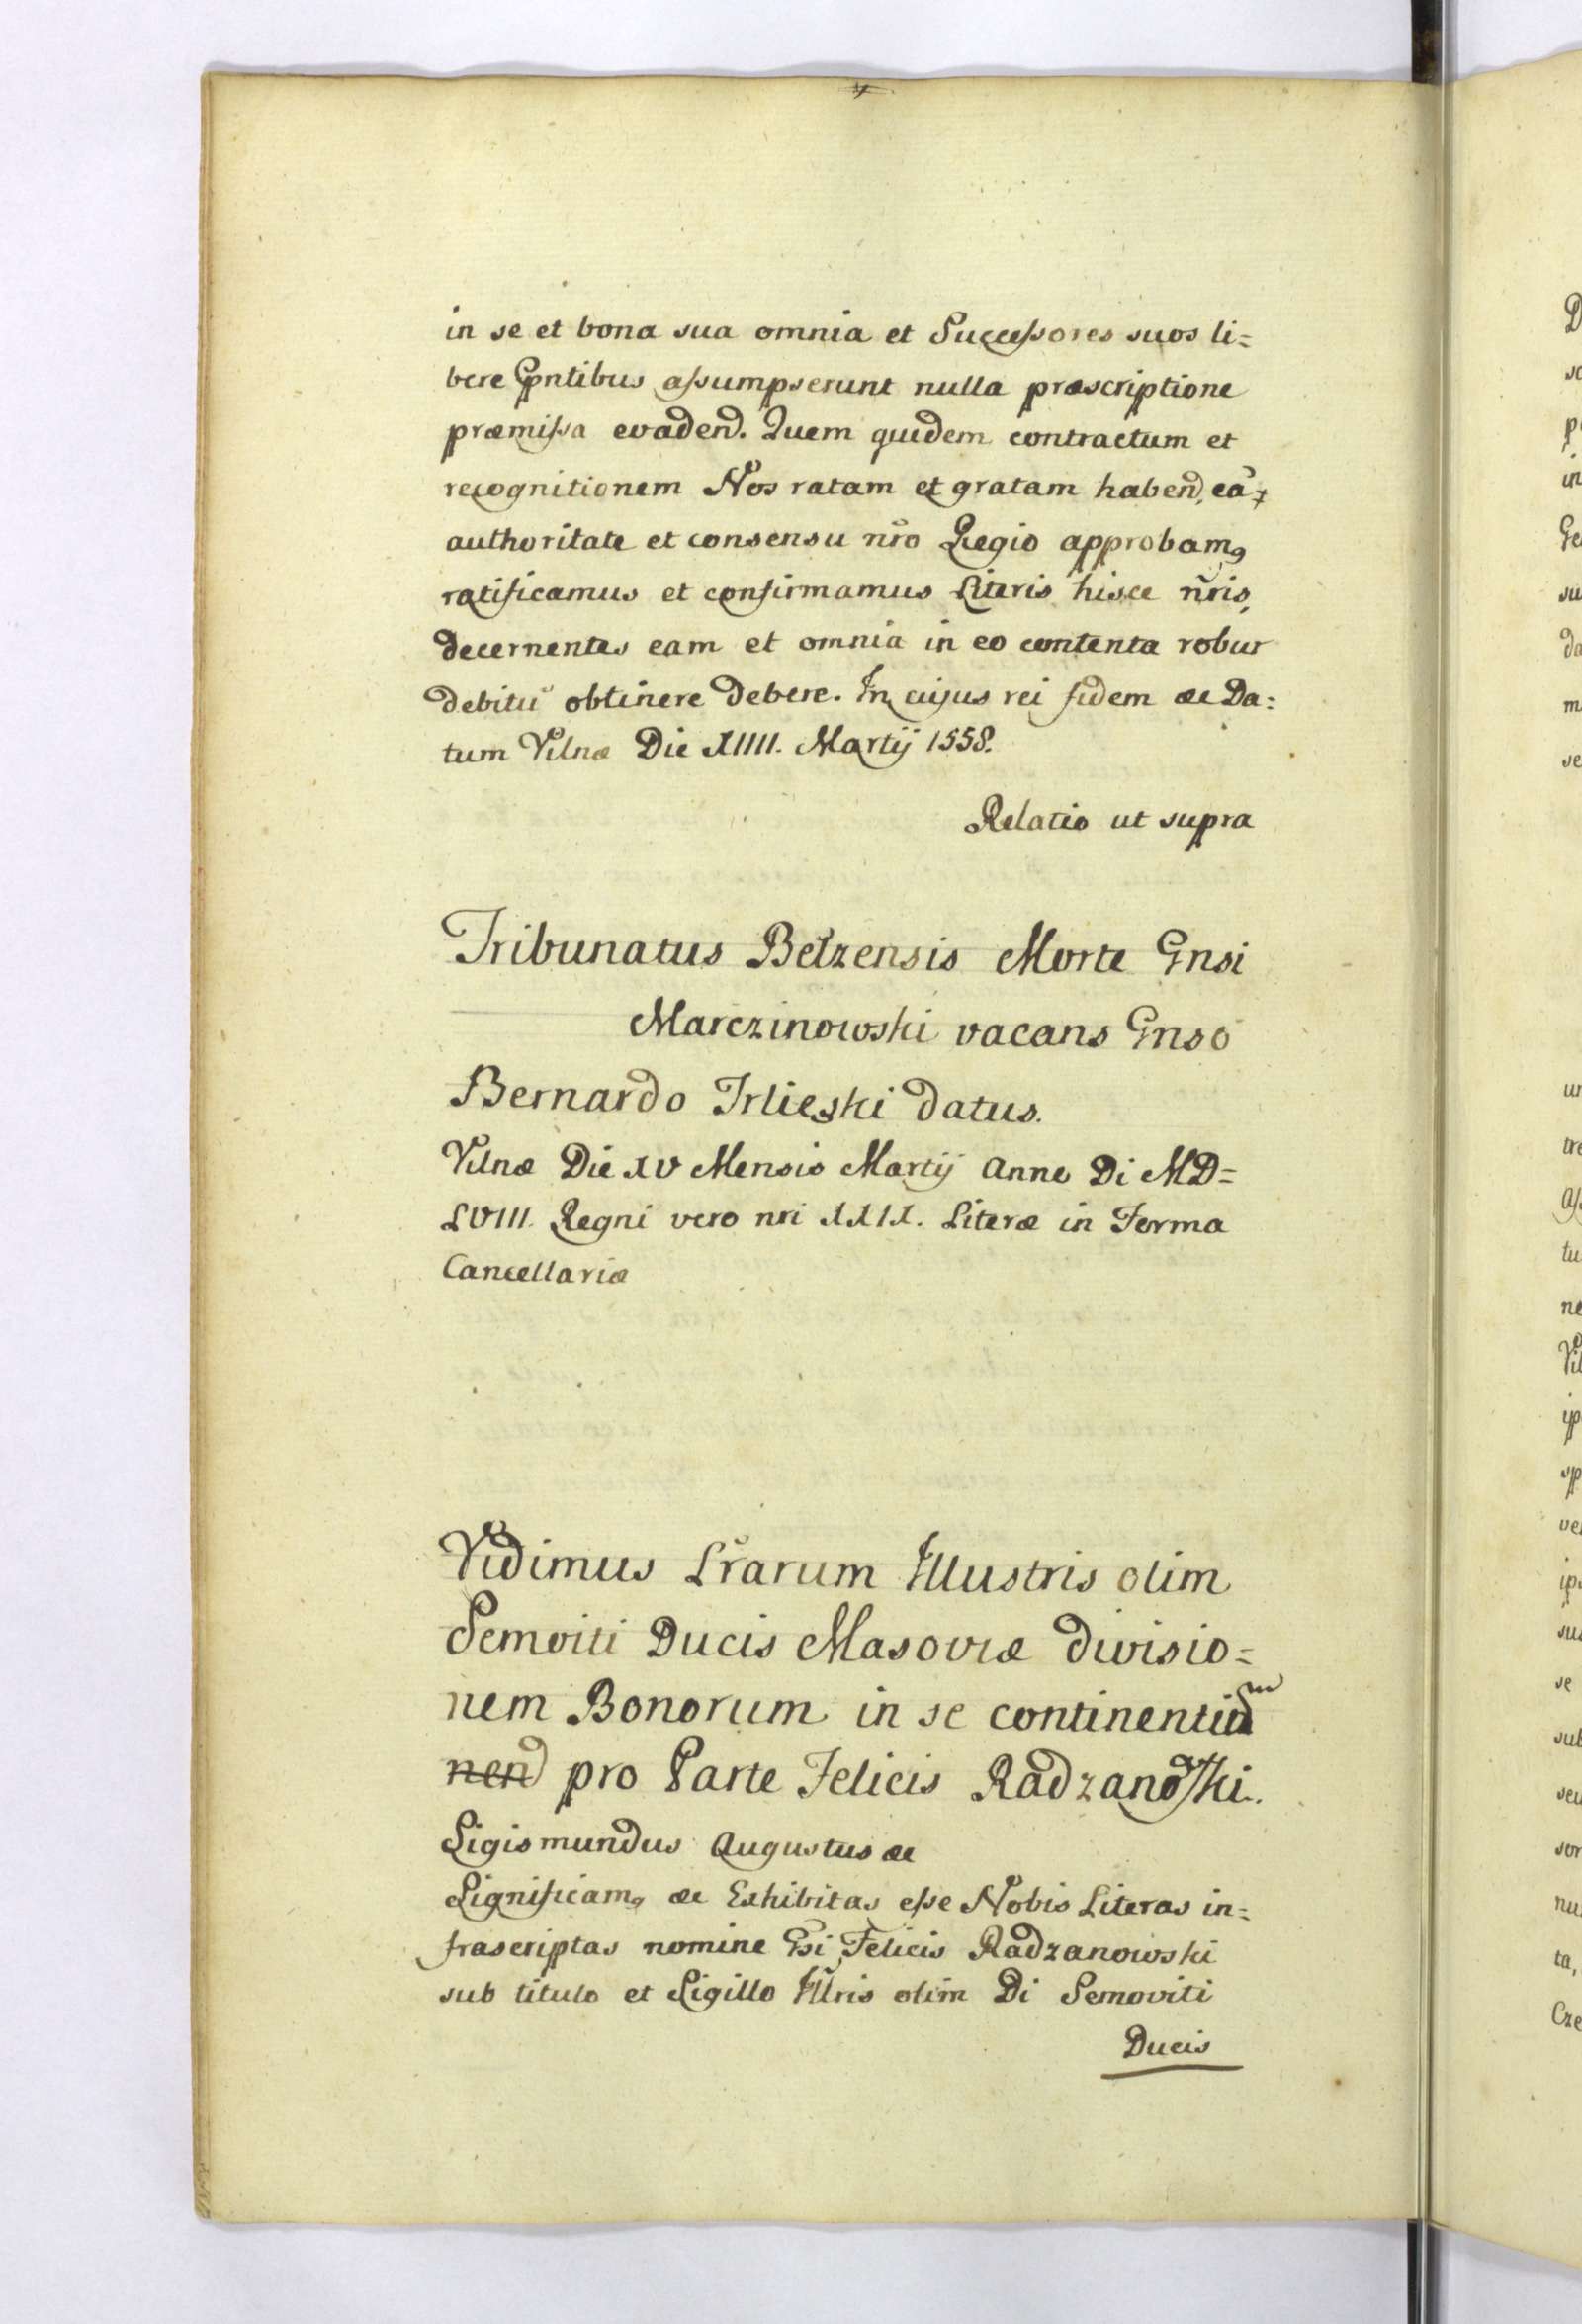 in se et bona sua omnia et Successores suos li=
bere Ppntibus assumpserunt nulla præscriptione
præmissa evadend. Quem quidem contractum et
recognitionem Nos ratam et gratam habend, eã
authoritate et consensu nr̃o Regio approbamꝯ
ratificamus et confirmamus Literis hisce nr̃is,
decernentes eam et omnia in eo contenta robur
debitũ obtinere debere. In cujus rei fidem &c Da=
tum Vilnæ Die XIIII. Martij 1558.
Relatio ut supra
Tribunatus Belzensis Morte Gnsi
Marczinowski vacans Gnso
Bernardo Irlieski datus.
Vilnæ Die XV Mensis Martij Anno Di MD=
LVIII. Regni vero nri XXIX. Literæ in Forma
Cancellariæ
Vidimus Lr̃arum Illustris olim
Semoviti Ducis Masoviæ divisio=
nem Bonorum in se continentium
nend pro Parte Felicis Radzanowski.
Sigismundus Augustus &c
Significamꝯ &c Exhibitas esse Nobis Literas in=
frascriptas nomine Gsi Felicis Radzanowski
sub titulo et Sigillo Illris olim Di Semoviti
Ducis